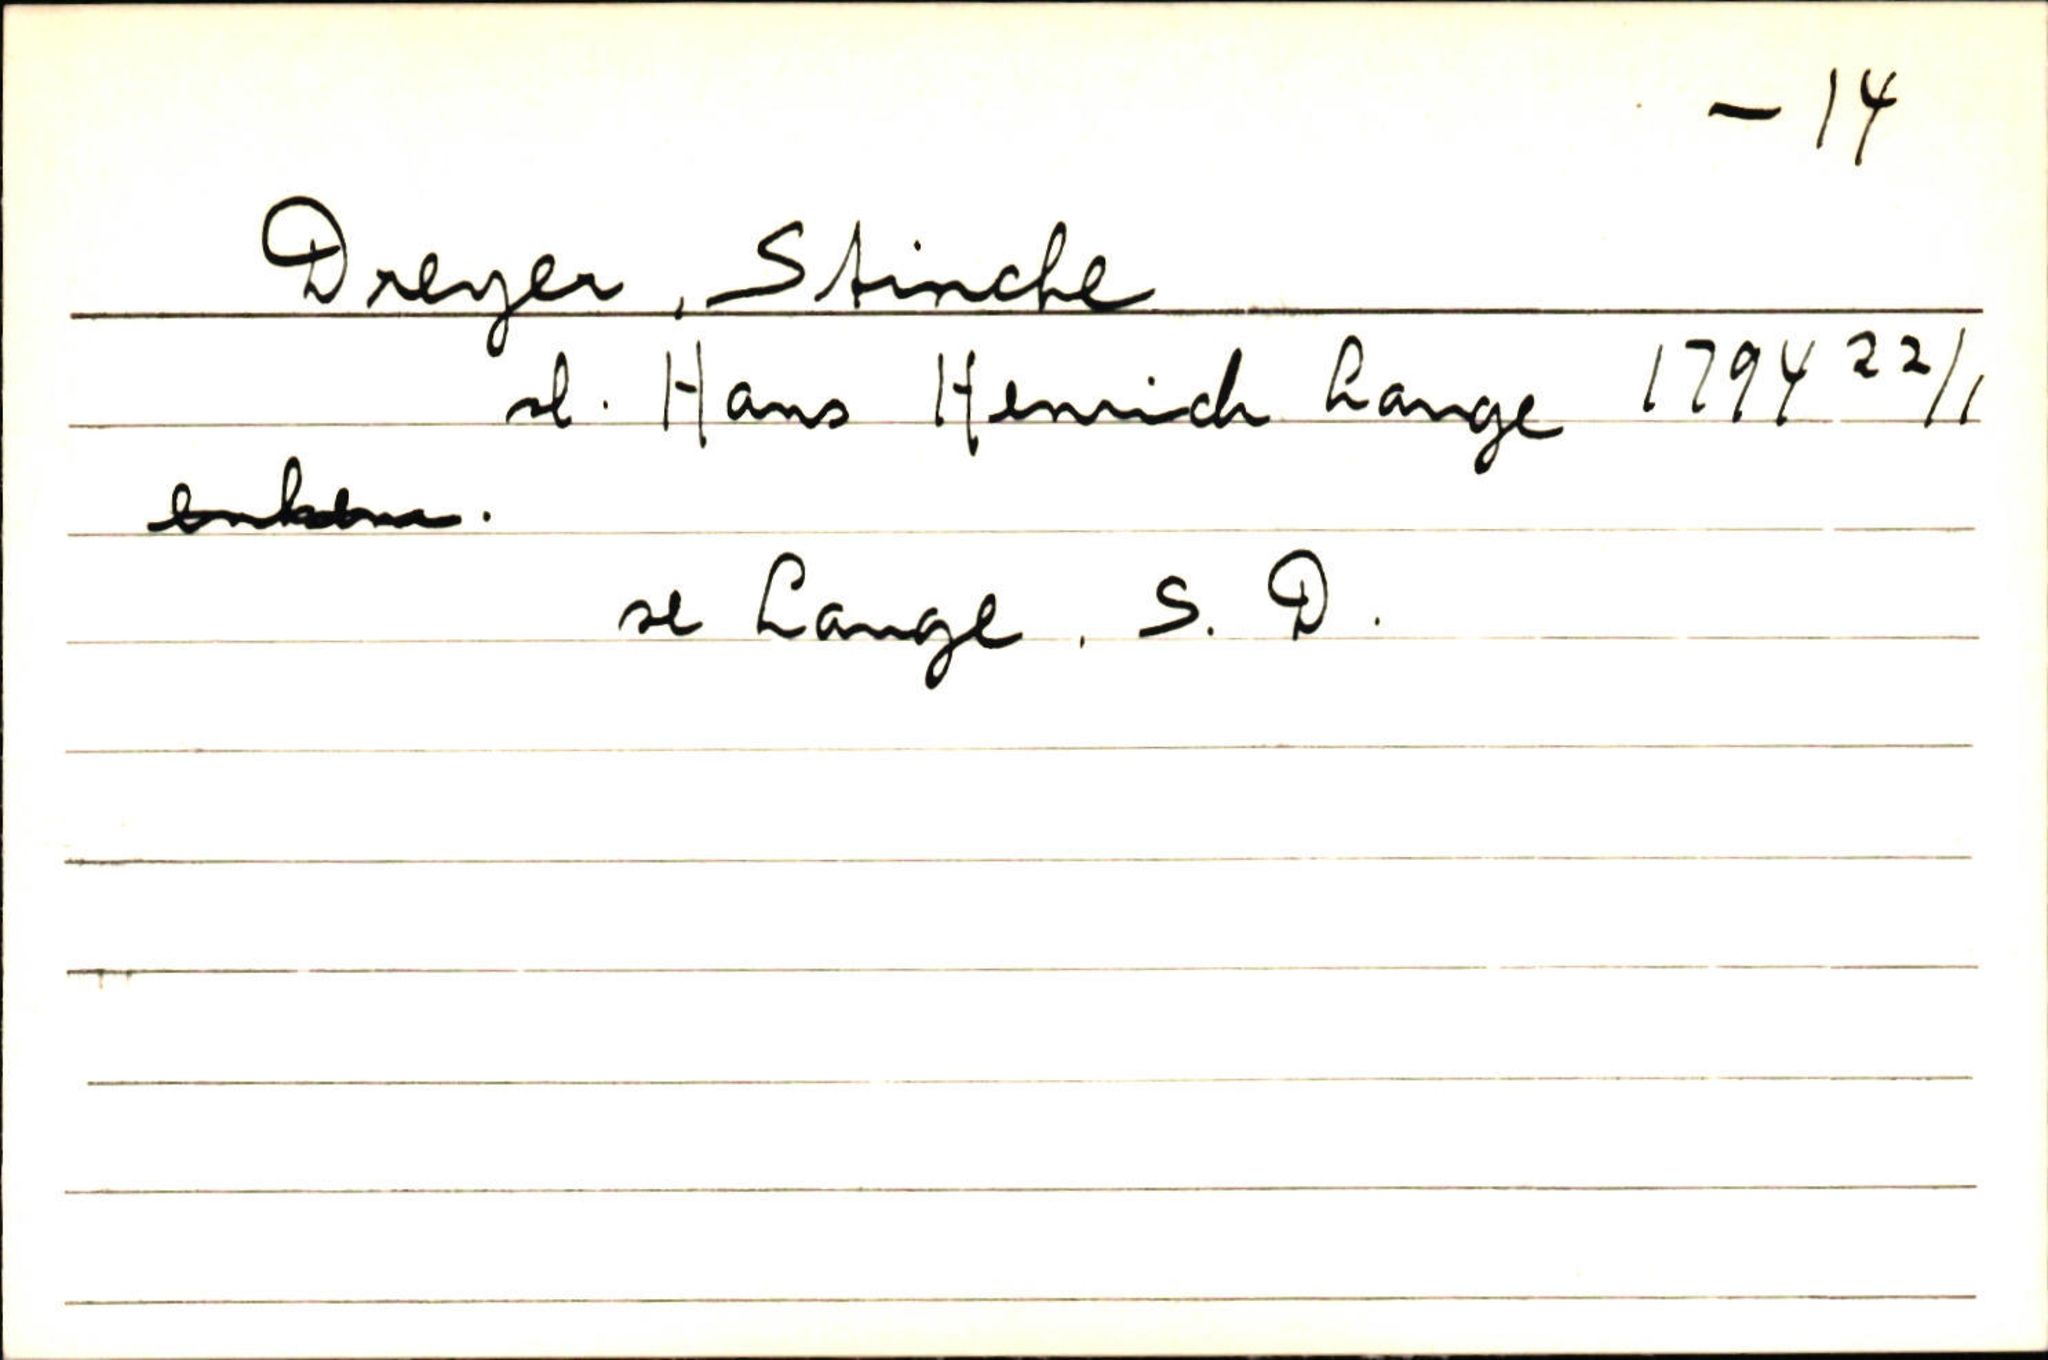 — 14
Dreyer, Stinche
sl. Hans Henrich Lange 1794 22/1
enkena.
se Lange, S. D.